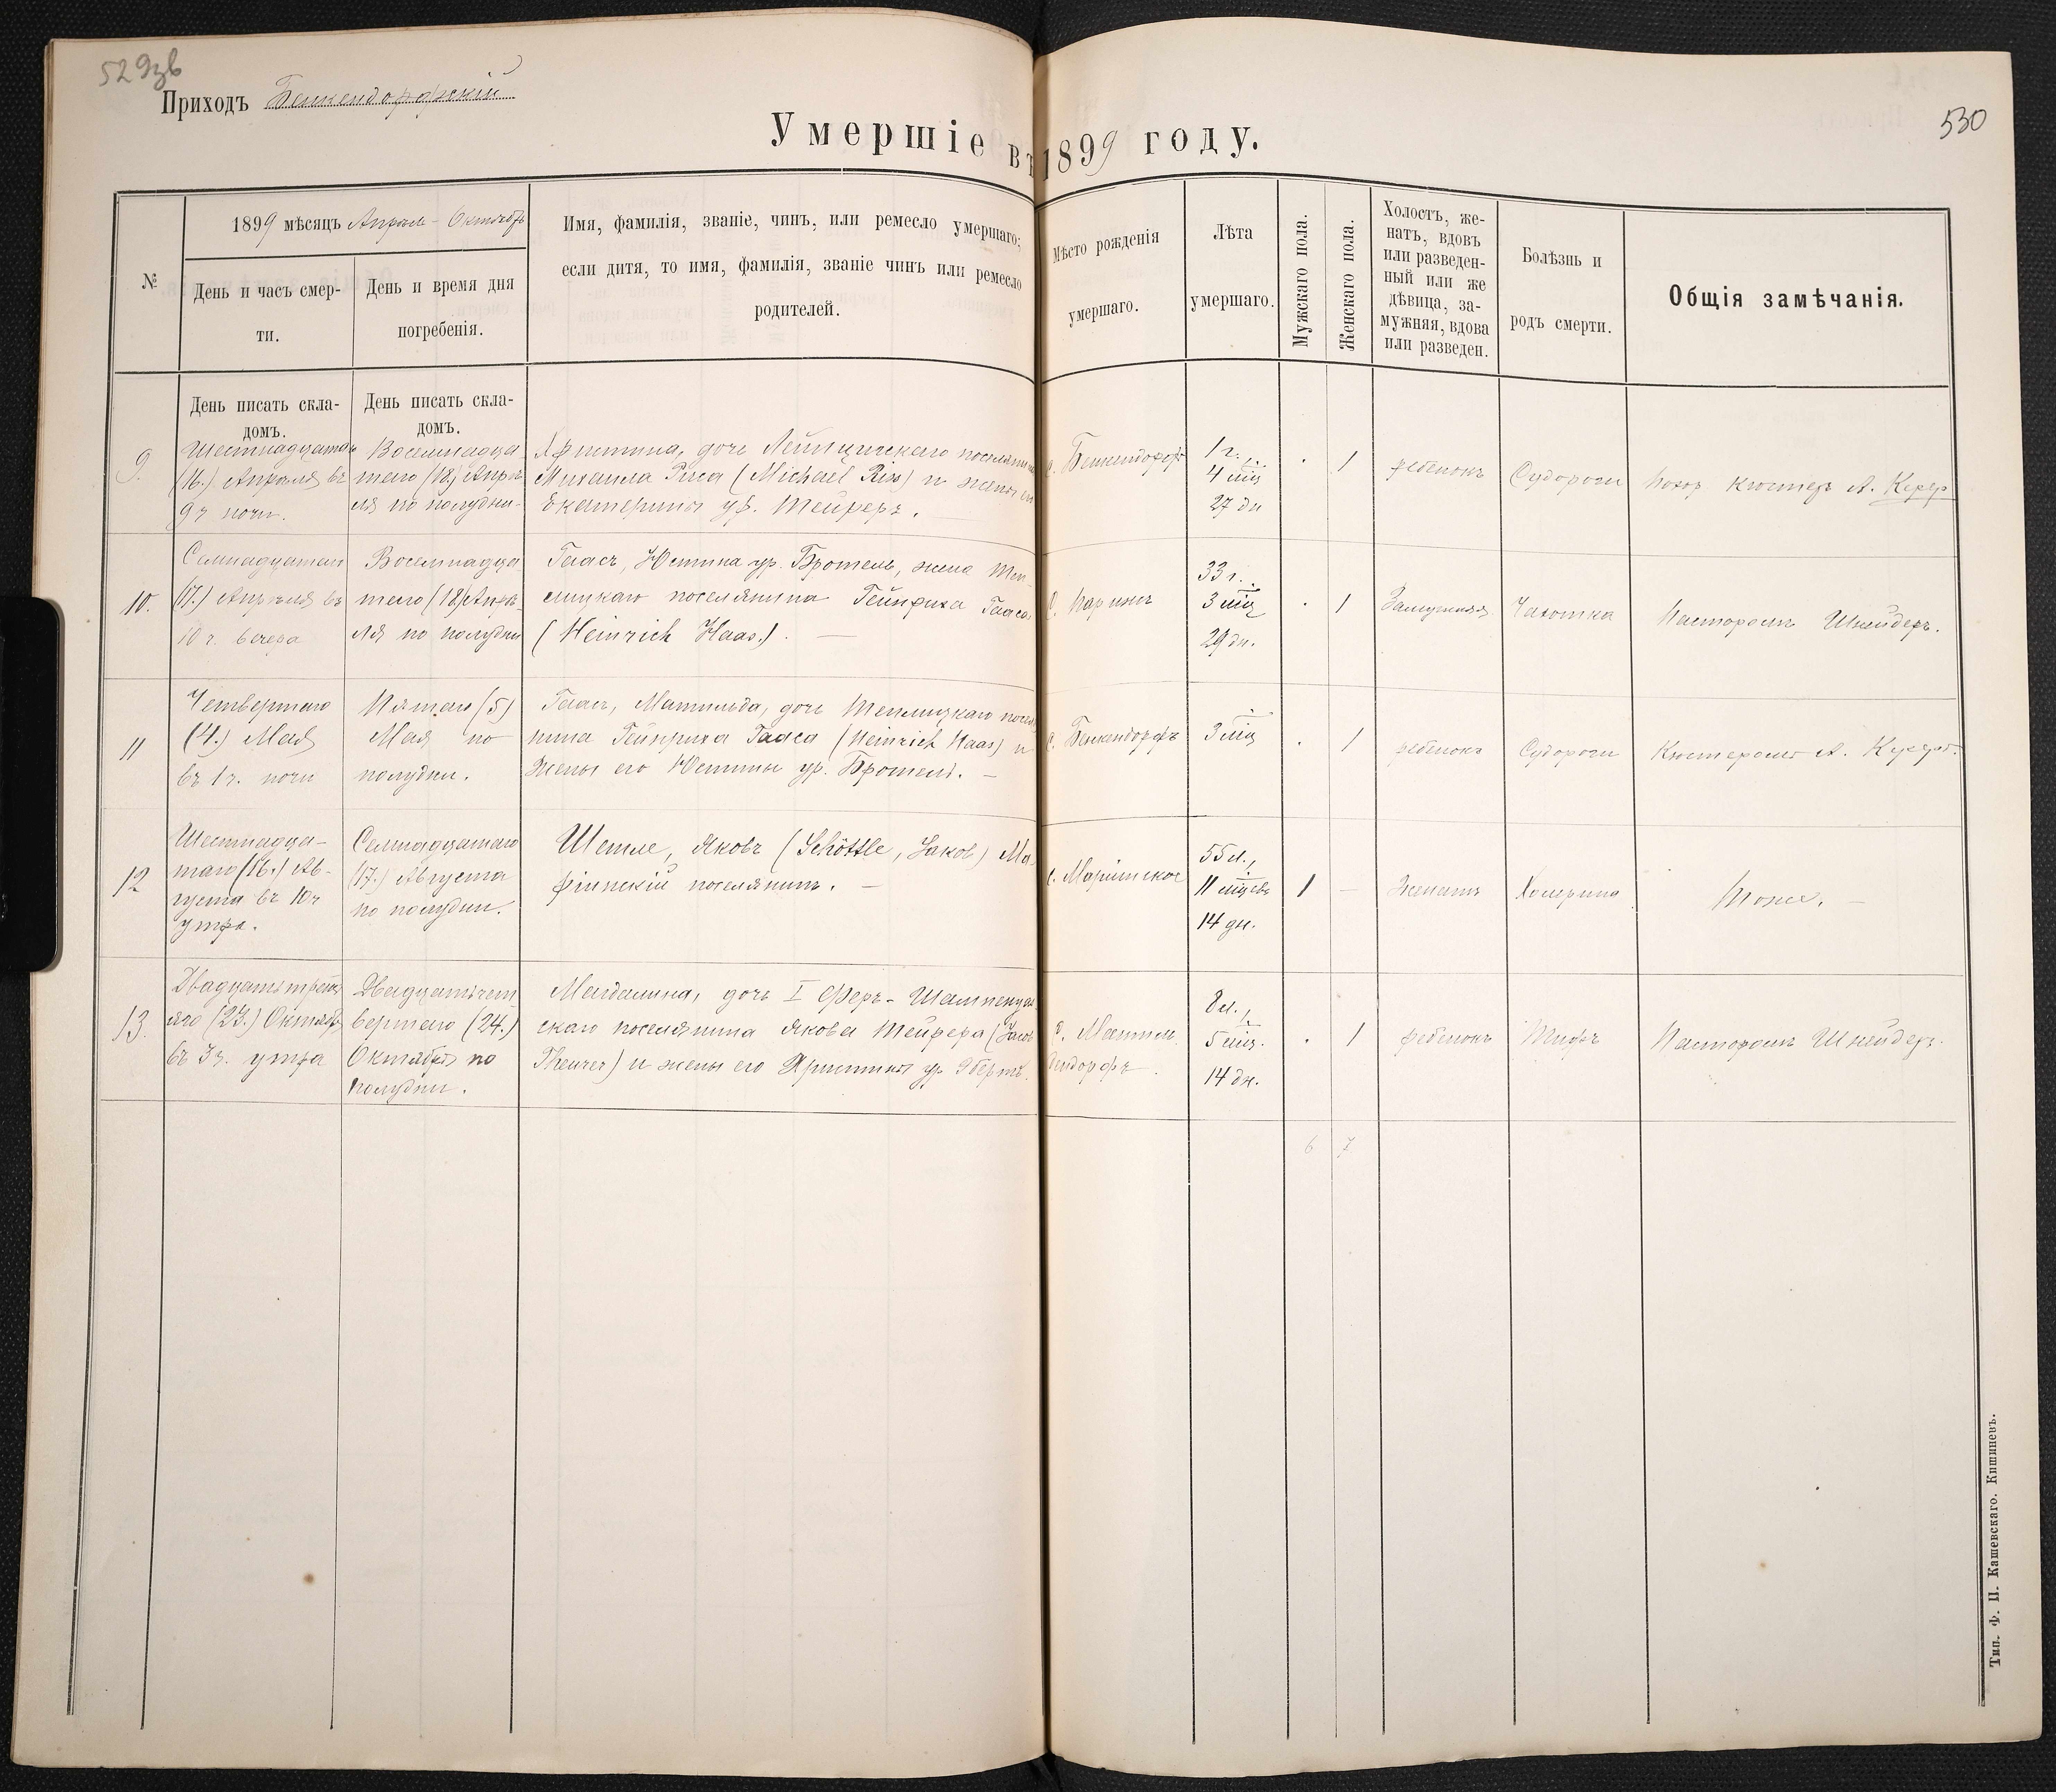 529зв
530
Приходъ Бенкендорфскій
Умершіе въ 1899 году.
№
1899 мѣсяцъ Апрѣль - Октябрь
День и часъ смер-
ти.
День и время дня
погребенія.
Имя, фамилія, званіе, чинъ, или ремесло умершаго;
если дитя, то имя, фамилія, званіе чинъ или ремесло
родителей.
Мѣсто рожденія
умершаго.
Лѣта
умершаго.
Мужскаго пола.
Женскаго пола.
Холостъ, же-
натъ, вдовъ
или разведен-
ный или же
дѣвица, за-
мужняя, вдова
или разведен.
Болѣзнь и
родъ смерти.
Общія замѣчанія.
День писать скла-
домъ.
День писать скла-
домъ.
9.
Шестнадцатаго
(16.) Апрѣля въ
9 ч ночи.
Восемнадца
таго (18.) Апрѣ
ля по полудни.
Христина, дочь Лейпцигскаго поселянина
Михаила Риса (Michael Riss) и жены его
Екатерины ур. Тейреръ.
с. Бенкендорфъ
1 г.,
4 мѣц
27 дн
.
1
ребенокъ
Судороги
Кюстеръ А. Керер
10.
Семнадцатаго
(17.) Апрѣля въ
10 ч. вечера
Восемнадца
таго (18) Апрѣ-
ля по полудни
Гаасъ, Юстина ур. Бротель, жена Теп-
лицкаго поселянина Гейнриха Гааса
(Heinrich Haas.). —
с. Парижъ
33 г.,
3 мѣц
29 дн.
.
1
Замужняя
Чахотка
Пасторомъ Шнейдеръ.
11
Четвертаго
(4.) Мая
въ 1 ч. ночи
Пятаго (5)
Мая по
полудни.
Гаасъ, Матильда, дочь Теплицкаго посел
нина Гейнриха Гааса (Heinrich Haas) и
жены его Юстины ур. Бротель. —
с. Бенкендорфъ
3 мѣц
.
1
ребенокъ
Судороги
Кюстеромъ А. Керер.
12
Шестнадца-
таго (16.) Ав-
густа въ 10 ч
утра.
Семнадцатаго
(17.) Августа
по полудни.
Шетле, Яковъ (Schöttle, Jakob) Ма-
ріинскій поселянинъ. —
с. Маріинское
55 л.,
11 мѣцевъ
14 дн.
1
—
Женатъ
Холерина
Тоже. —
13.
Двадцать треть
яго (23.) Октября
въ 3 ч. утра
Двадцать чет
вертаго (24.)
Октября по
полудни.
Магдалина, дочь I Феръ-Шампенуаз
скаго поселянина Якова Тейрера (Jacob
Theurer) и жены его Христины ур Эбертъ.
с. Матиль
дендорфъ.
8 л.,
5 мѣц.
14 дн.
.
1
ребенокъ
Тифъ
Пасторомъ Шнейдеръ.
6 7
Тип. Ф. П. Кашевскаго. Кишиневъ.